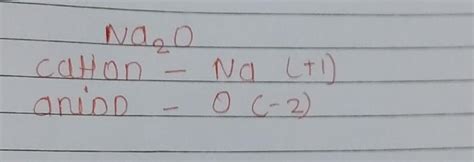 Na₂O
cation - Na (+1)
anion - O (-2)